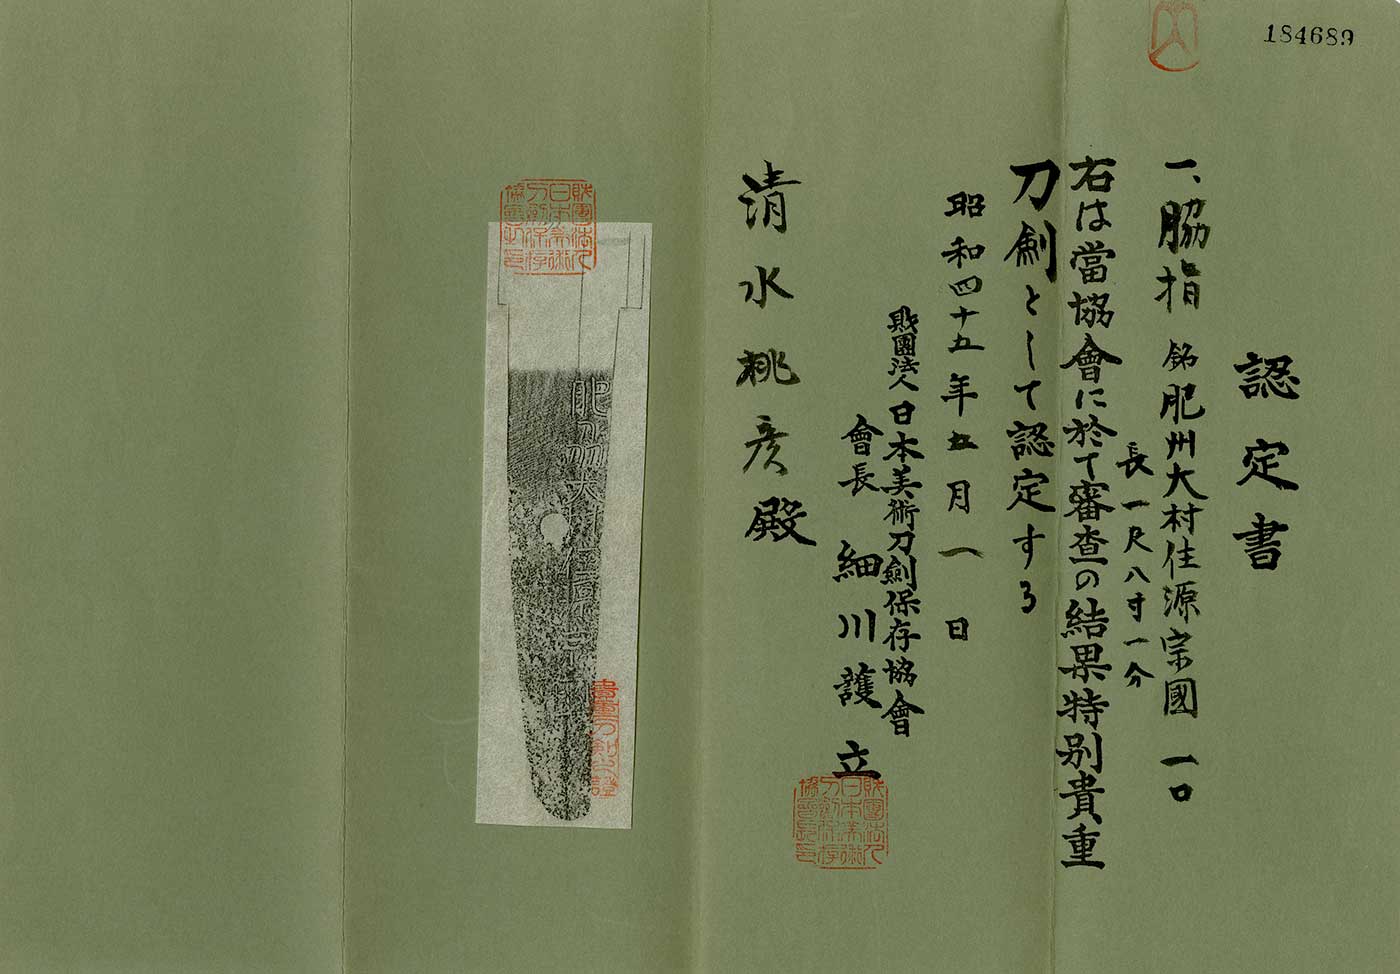 184689
認定書
一、脇指 銘 肥州大村住源宗國 一口
長一尺八寸一分
右は當協會に於て審査の結果特別貴重
刀劍として認定する
昭和四十五年五月一日
財團法人日本美術刀劍保存協會
會長 細川護立
財團法人日本美術刀劍保存協會長印
清水桃彦殿
財團法人日本美術刀劍保存協會之印
肥州大村住源宗國
貴重刀剣之證